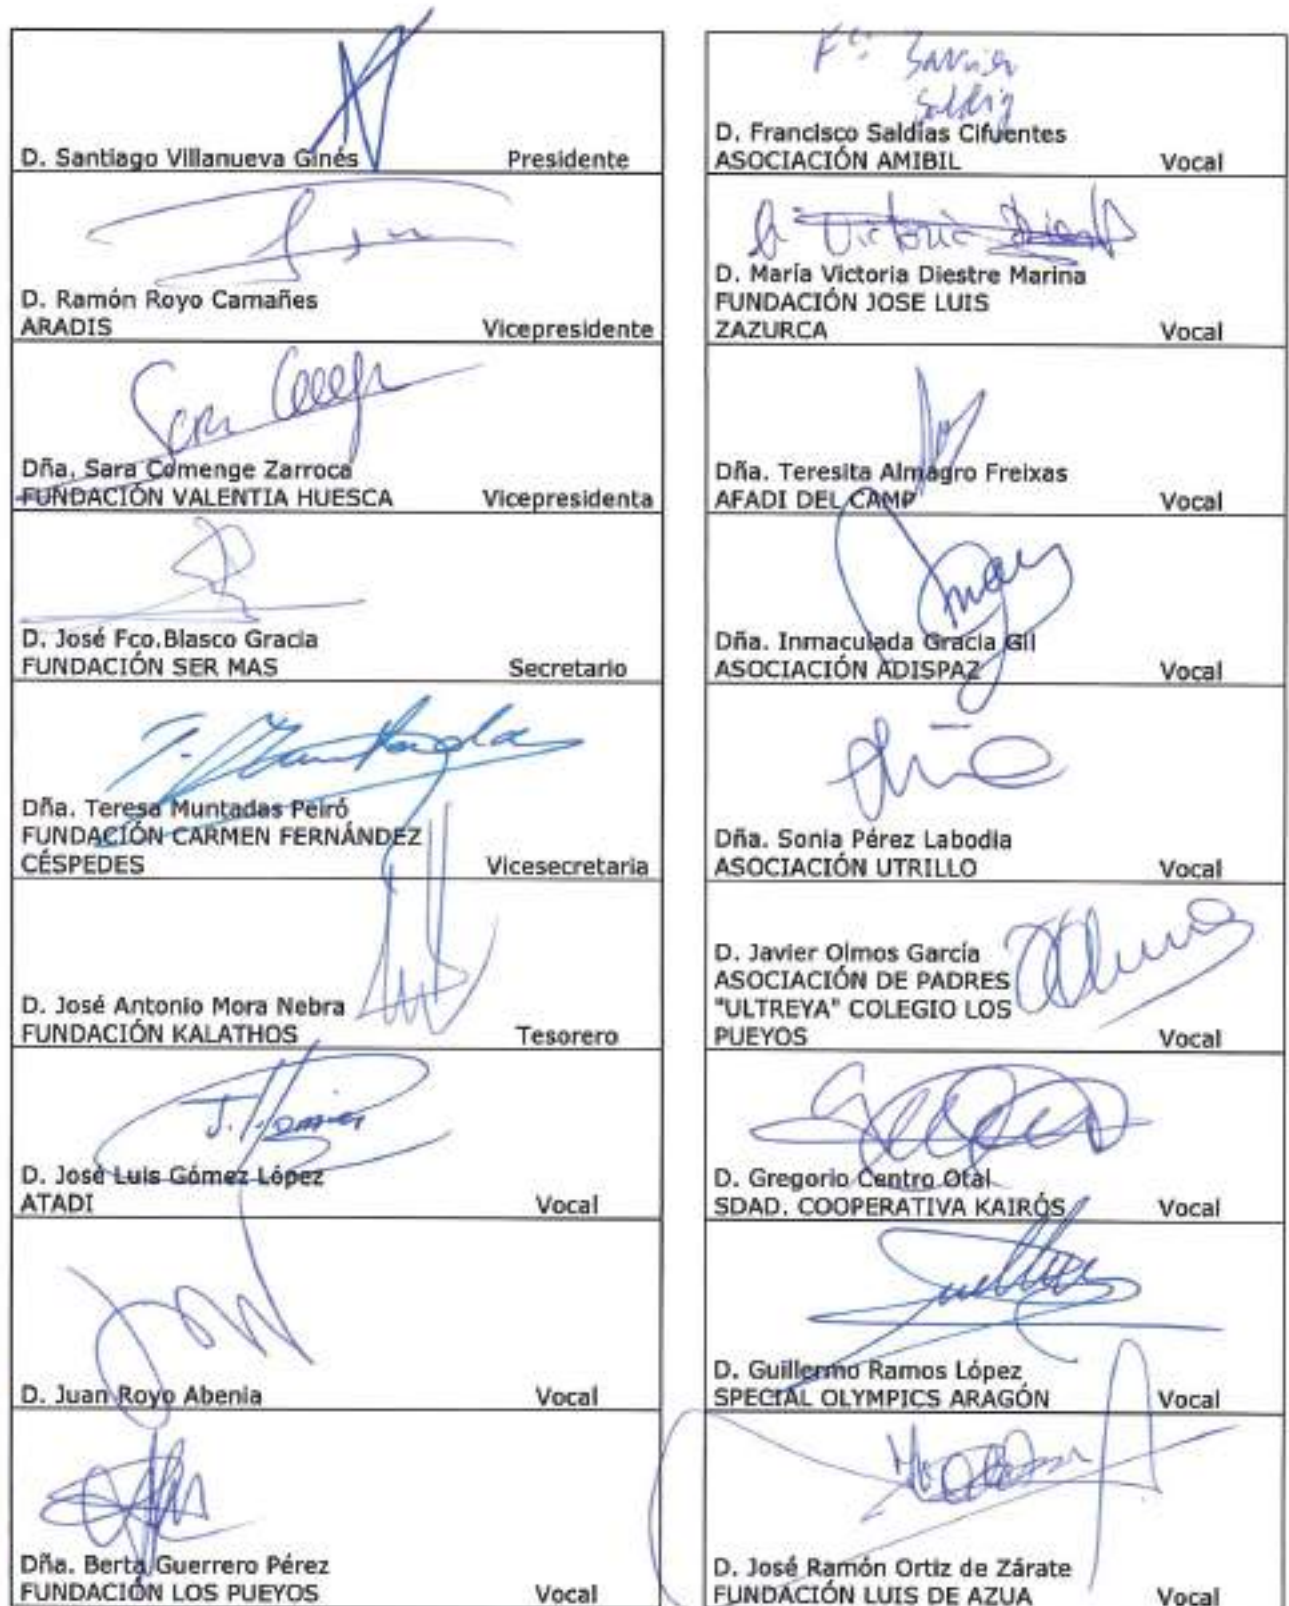 D. Santiago Villanueva Ginés Presidente
D. Ramón Royo Camañes
ARADIS Vicepresidente
Sara
Dña. Sara Comenge Zarroca
FUNDACIÓN VALENTIA HUESCA Vicepresidenta
D. José Fco.Blasco Gracia
FUNDACIÓN SER MAS Secretario
T. Muntadas
Dña. Teresa Muntadas Peiró
FUNDACIÓN CARMEN FERNÁNDEZ
CÉSPEDES Vicesecretaria
D. José Antonio Mora Nebra
FUNDACIÓN KALATHOS Tesorero
D. José Luis Gómez López
ATADI Vocal
D. Juan Royo Abenia Vocal
Dña. Berta Guerrero Pérez
FUNDACIÓN LOS PUEYOS Vocal
D. Francisco Saldías Cifuentes
ASOCIACIÓN AMIBIL Vocal
Victoria
D. María Victoria Diestre Marina
FUNDACIÓN JOSE LUIS
ZAZURCA Vocal
Dña. Teresita Almagro Freixas
AFADI DEL CAMP Vocal
Dña. Inmaculada Gracia Gil
ASOCIACIÓN ADISPAZ Vocal
Dña. Sonia Pérez Labodia
ASOCIACIÓN UTRILLO Vocal
D. Javier Olmos García
ASOCIACIÓN DE PADRES
"ULTREYA" COLEGIO LOS
PUEYOS Vocal
D. Gregorio Centro Otal
SDAD. COOPERATIVA KAIRÓS Vocal
D. Guillermo Ramos López
SPECIAL OLYMPICS ARAGÓN Vocal
D. José Ramón Ortiz de Zárate
FUNDACIÓN LUIS DE AZUA Vocal